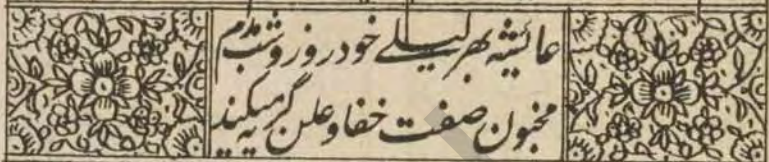 عائیشه بهر لیلے خود روز و شب مدام
مجنون صفت خفا و علن گریه میکند